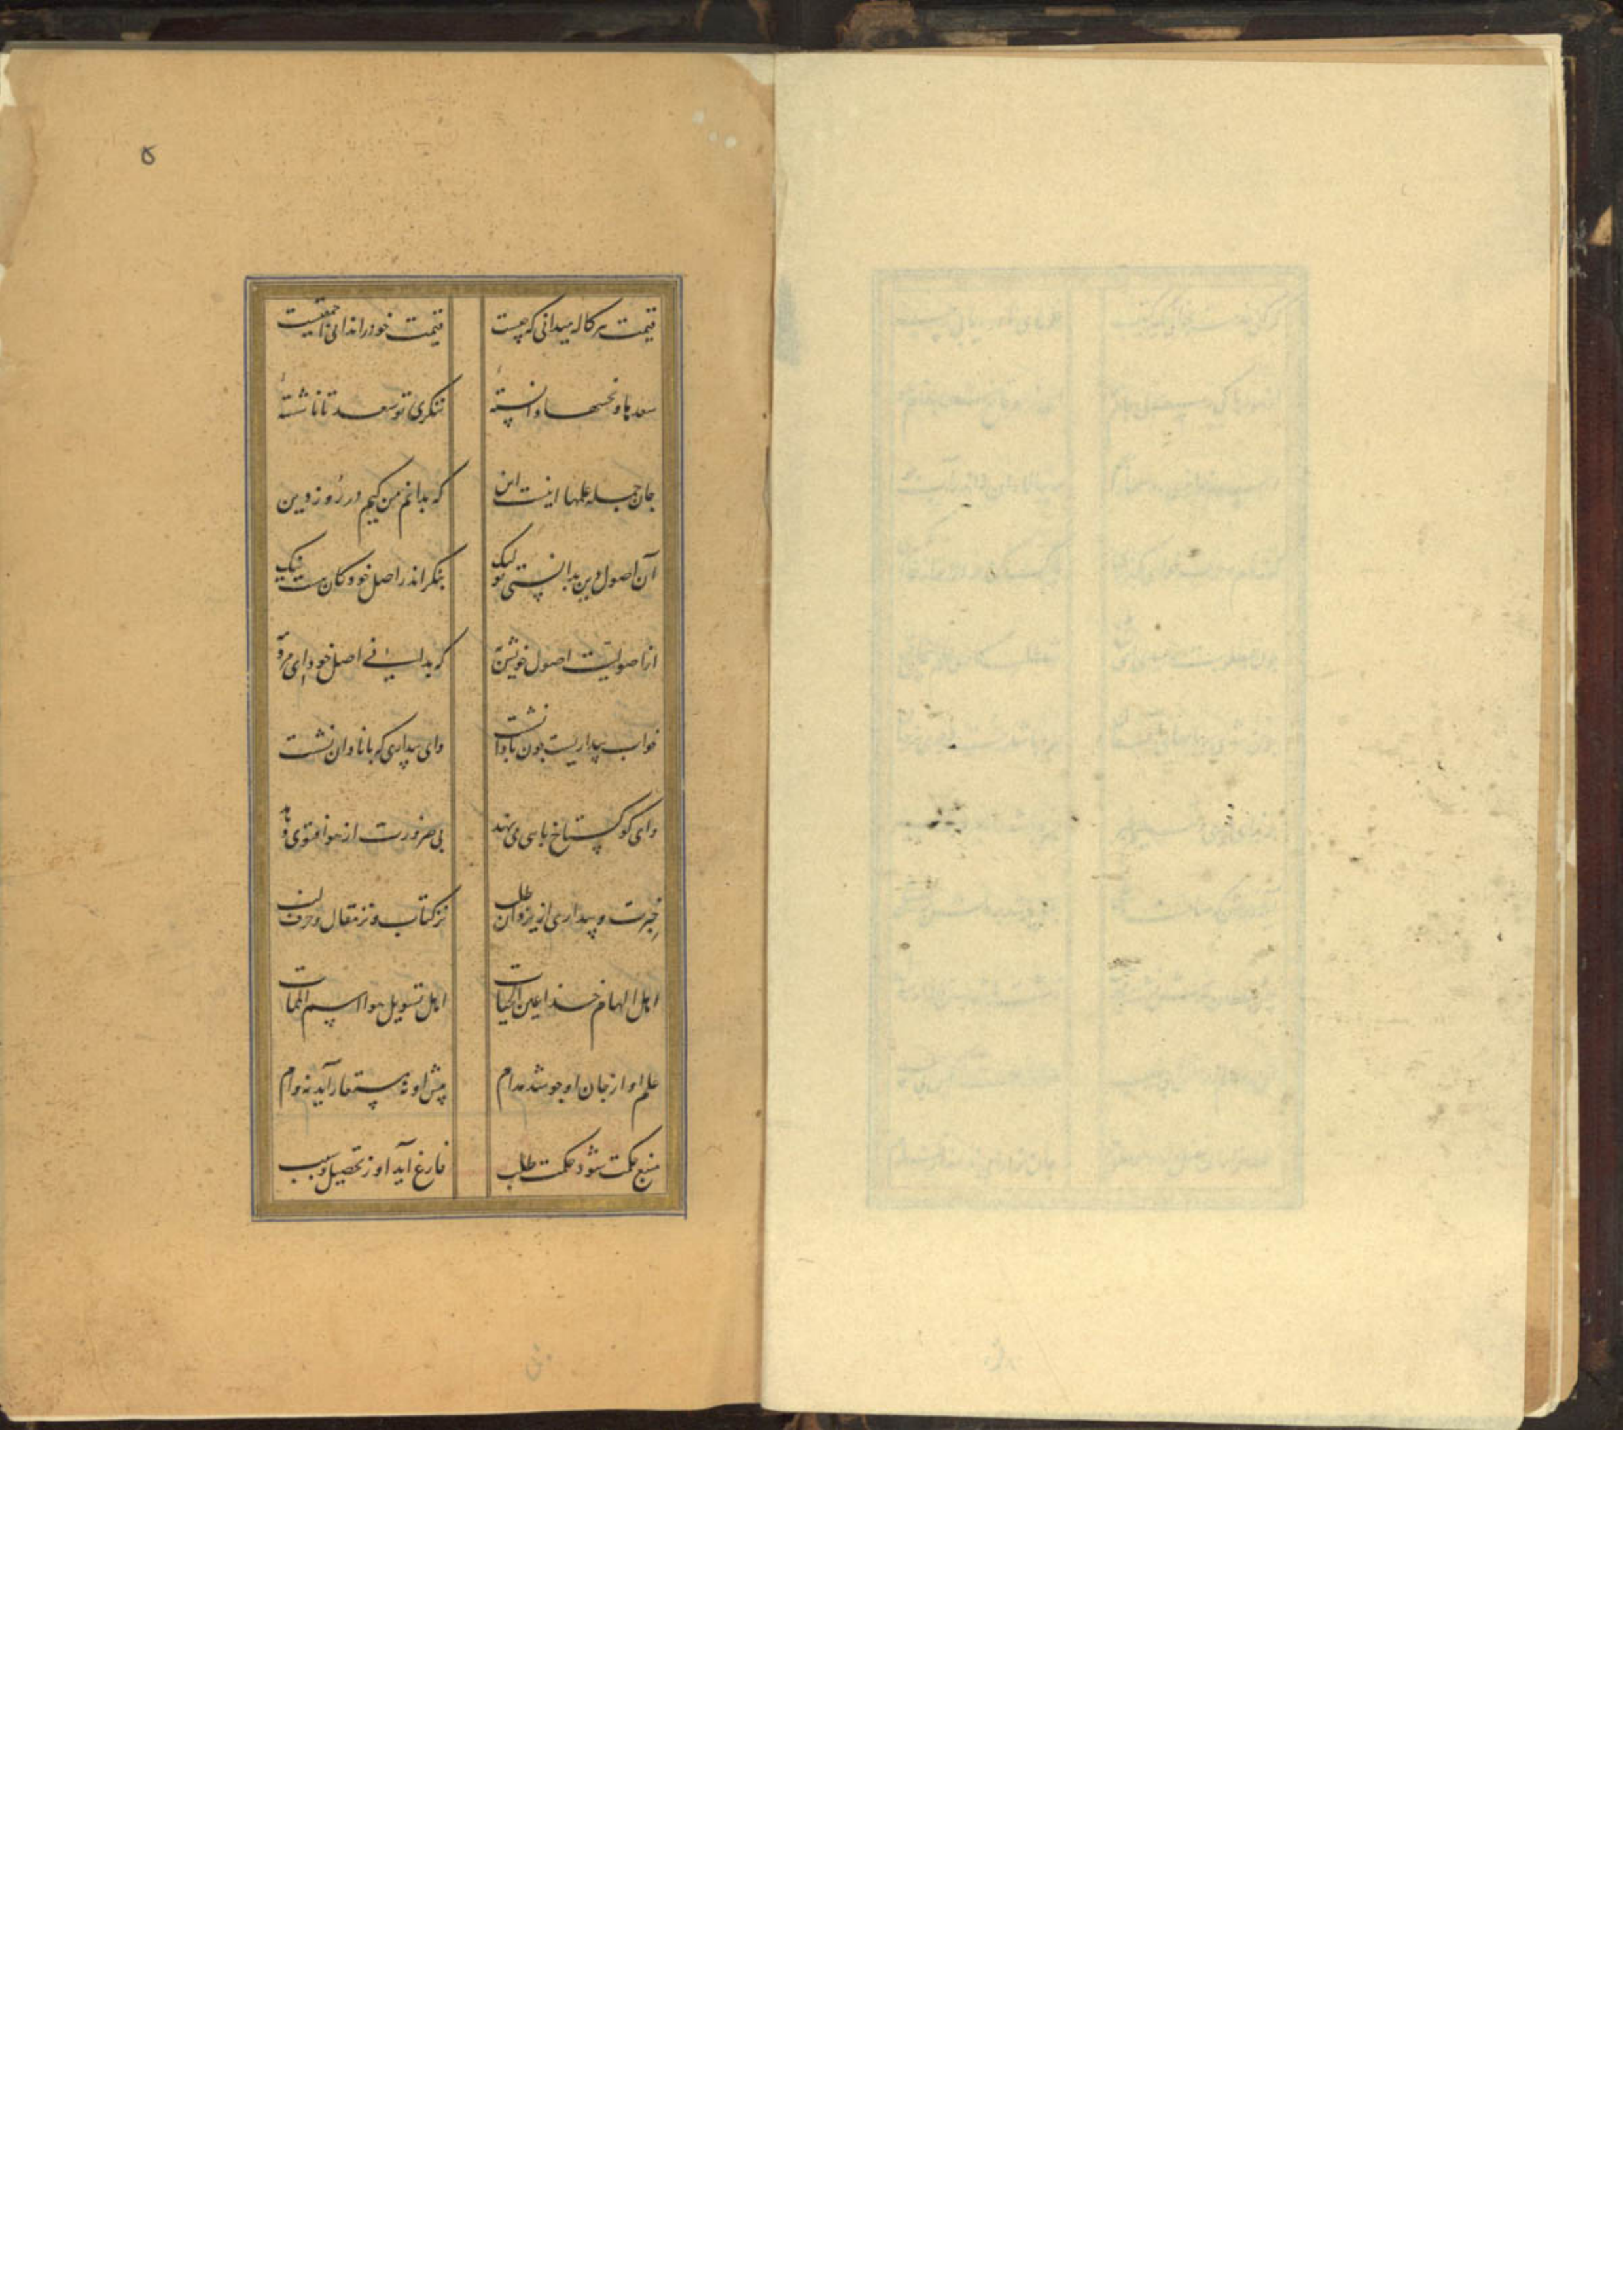 ۵
قیمت هر کاله میدانی که چیست قیمت خود را ندانی احمقیست
سعدها و نحسها دانستهٔ ننکری تو سعد تا ناشستهٔ
جان جمله علمها اینست این که بدانم من کیم در روز دین
آن اصول دین بدانستی تو لیک بنکر اندر اصل خود کان هست نیک
از اصولیت اصول خویش به که بدانی اصل خود ای مرد
خواب بیداریست چون با دانشست وای بیداری که با نادان نشست
وای کو کستاخ پای می نهد بی ضرورت از هوا فتوی دهد
خبرت و بیداری از یزدان طلب نز کتاب و نز مقال و حرف لب
اهل الهام خدا عین الحیات اهل تسویل هوا سم الممات
علم او از جان او جوشد مدام پیش او نه مستعار آید نه وام
منبع حکمت شود حکمت طلب فارغ آید او ز تحصیل و سبب